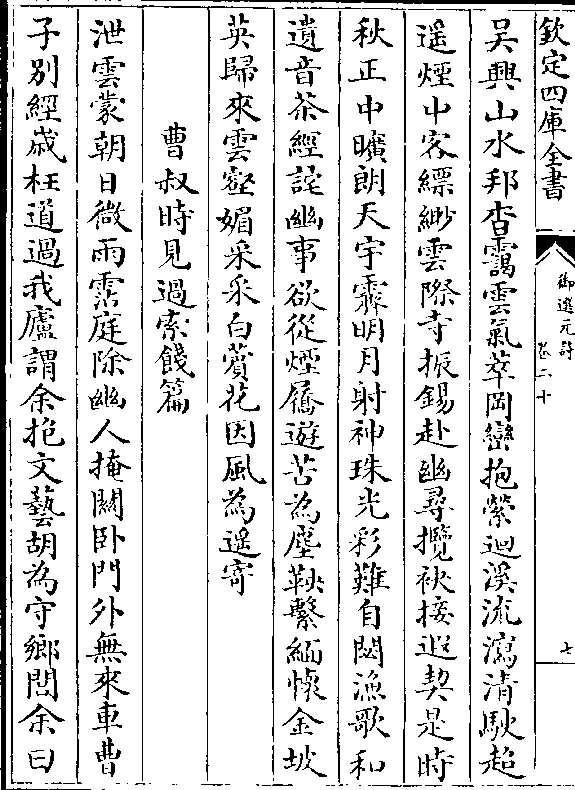 欽定四庫全書
御選元詩 卷二十
七
吴興山水邦杳靄雲氣萃岡巒抱縈迴溪流瀉清駛超
遥煙中客縹緲雲際寺振錫赴幽尋攬袂接遐契是時
秋正中曠朗天宇霽明月射神珠光彩難自閟漁歌和
遺音茶經詫幽事欲從煙屩遊苦為塵鞅繫緬懷金坡
英歸來雲壑媚采采白薠花因風為遥寄
曹叔時見過索餞篇
泄雲蒙朝日微雨霑庭除幽人掩關卧門外無來車曹
子别經歲枉道過我廬謂余抱文藝胡為守鄉閭余曰